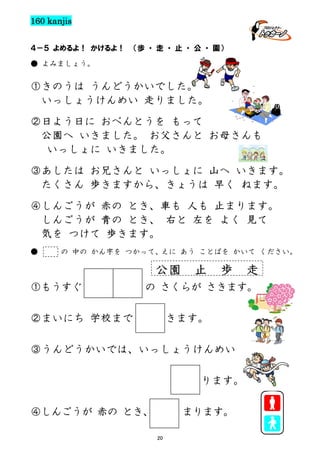 160 kanjis
4－5 よめるよ！ かけるよ！ （歩・走・止・公・園）
● よみましょう。
①きのうは うんどうかいでした。
いっしょうけんめい 走りました。
②日よう日に おべんとうを もって
公園へ いきました。 お父さんと お母さんも
いっしょに いきました。
③あしたは お兄さんと いっしょに 山へ いきます。
たくさん 歩きますから、きょうは 早く ねます。
④しんごうが 赤の とき、車も 人も 止まります。
しんごうが 青の とき、 右と 左を よく 見て
気を つけて 歩きます。
● の 中の かん字を つかって、えに あう ことばを かいて ください。
公園 止 歩 走
①もうすぐ の さくらが さきます。
②まいにち 学校まで きます。
③うんどうかいでは、いっしょうけんめい
ります。
④しんごうが 赤の とき、 まります。
20